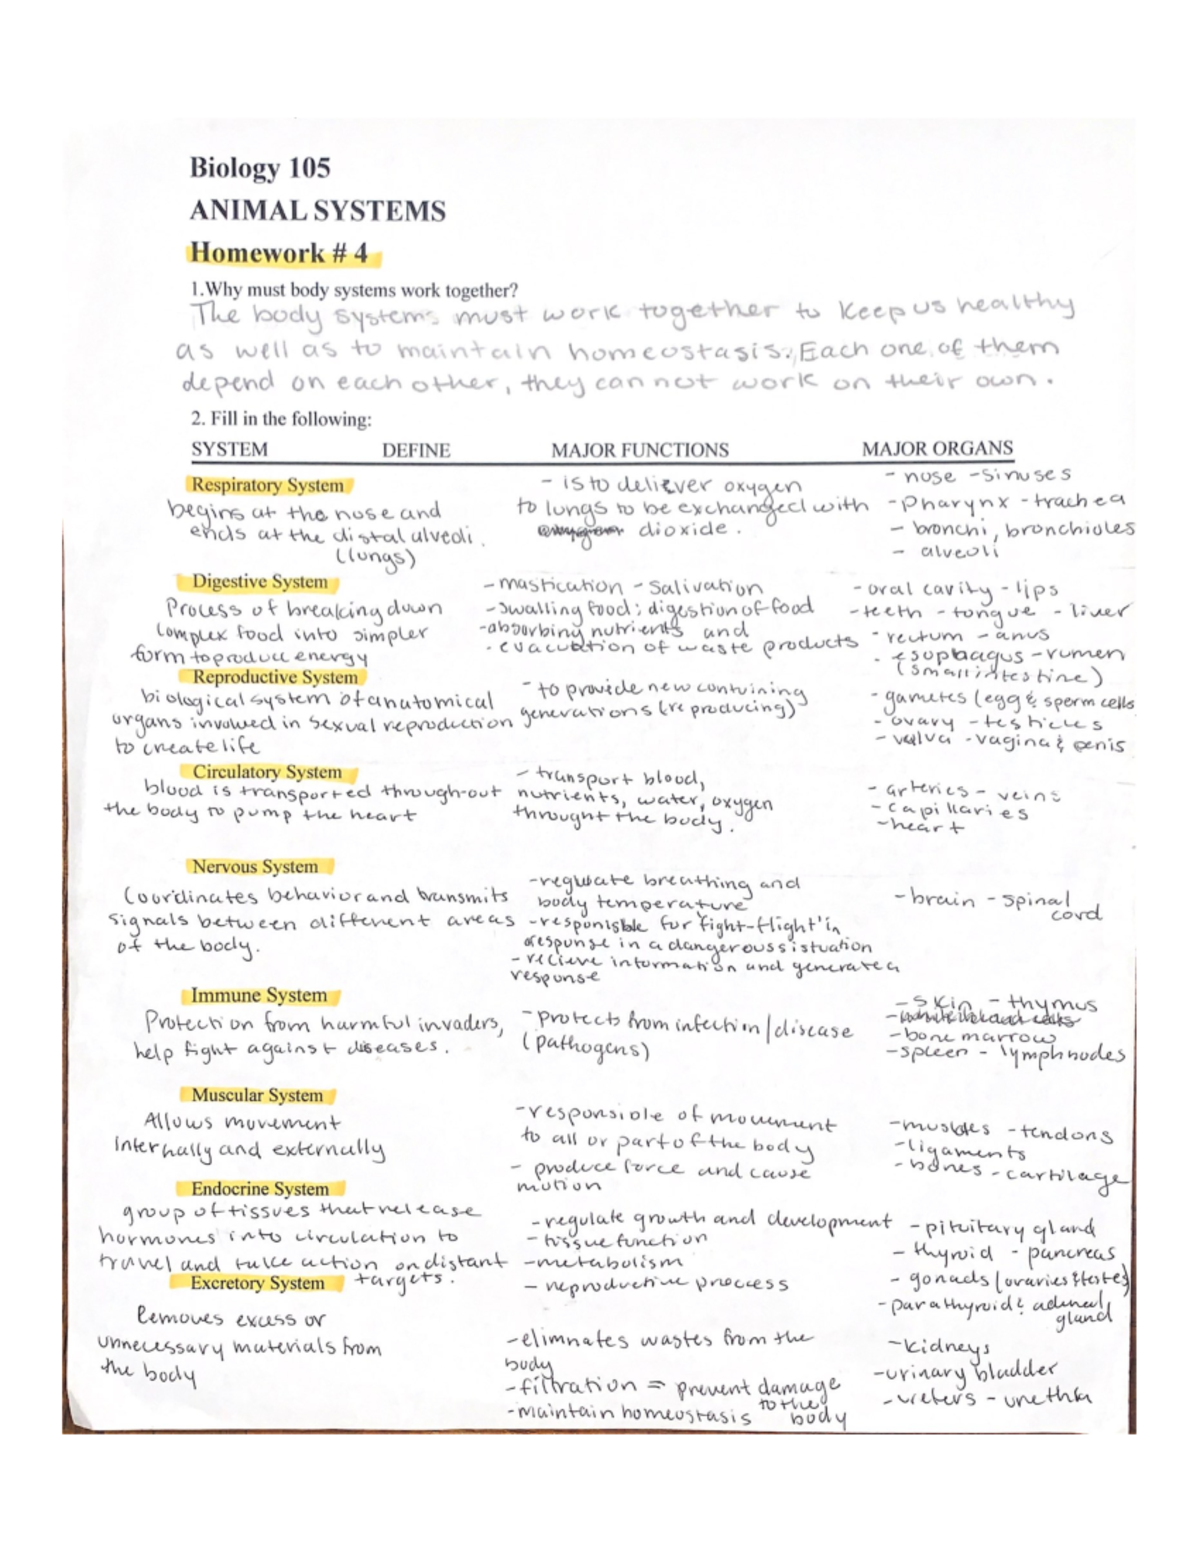 Biology 105
ANIMAL SYSTEMS
Homework # 4
1.Why must body systems work together?
The body systems must work together to keep us healthy
as well as to maintain homeostasis. Each one of them
depend on each other, they can not work on their own.
2. Fill in the following:
SYSTEM DEFINE MAJOR FUNCTIONS MAJOR ORGANS
Respiratory System
begins at the nose and
ends at the distal alveoli.
(lungs)
- is to deliever oxygen
to lungs to be exchanged with
dioxide.
- nose - sinuses
- pharynx - trachea
- bronchi, bronchioles
- alveoli
Digestive System
Process of breaking down
complex food into simpler
form to produce energy
- mastication - salivation
- swalling food; digestion of food
- absorbing nutrients and
- evacuation of waste products
- oral cavity - lips
- teeth - tongue - liver
- rectum - anus
- esophagus - rumen
(small intestine)
Reproductive System
biological system of anatomical
organs involved in sexual reproduction
to create life
- to provide new contuining
generations (reproducing)
- gametes (egg & sperm cells
- ovary - testicles
- vulva - vagina & penis
Circulatory System
blood is transported through-out
the body to pump the heart
- transport blood,
nutrients, water, oxygen
throught the body.
- arteries - veins
- capillaries
- heart
Nervous System
Coordinates behavior and transmits
signals between different areas
of the body.
- regulate breathing and
body temperature
- responisble for fight-flight in
response in a dangerous sistuation
- recieve information and generate a
response
- brain - spinal
cord
Immune System
Protection from harmful invaders,
help fight against diseases.
- protects from infection/disease
(pathogens)
- skin - thymus
- bone marrow
- spleen - lymph nodes
Muscular System
Allows movement
internally and externally
- responsible of movement
to all or part of the body
- produce force and cause
motion
- muscles - tendons
- ligaments
- bones - cartilage
Endocrine System
group of tissues that release
hormones into circulation to
travel and take action on distant
targets.
- regulate growth and development
- tissue function
- metabolism
- reproductive proccess
- pituitary gland
- thyroid - pancreas
- gonads (ovaries & testes)
- parathyroid & adrenal
gland
Excretory System
Removes excess or
unnecessary materials from
the body
- elimnates wastes from the
body
- filtration = prevent damage
to the body
- maintain homeostasis
- kidneys
- urinary bladder
- ureters - urethra